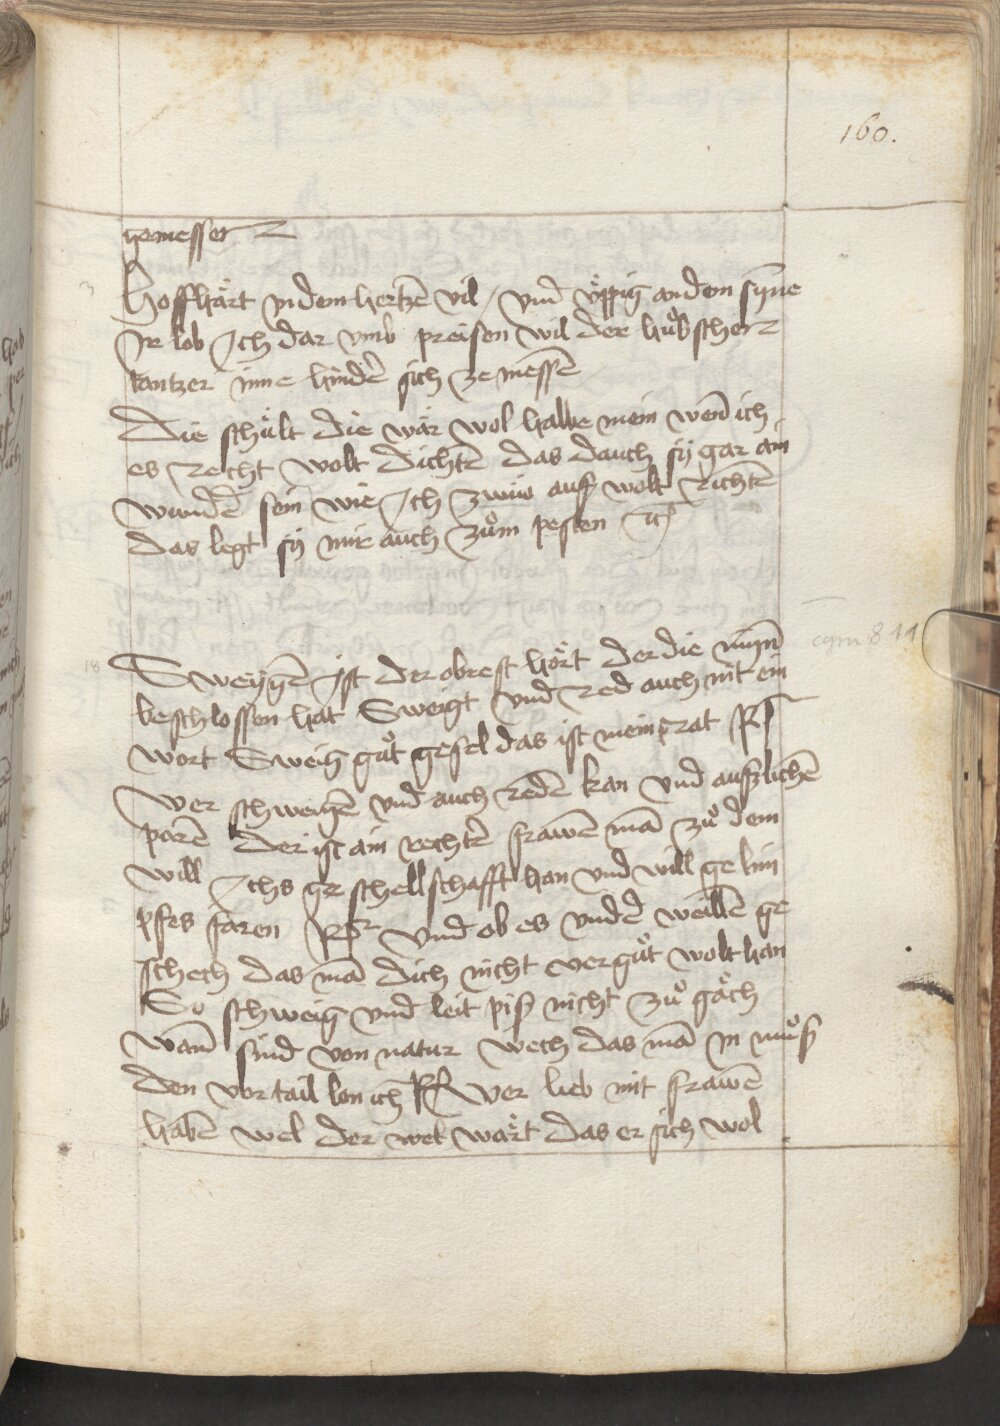 160.
gemesser
Hoffhärt in dem hertzē vil / vnd v̈ppig an dem syne
Ir lob Ich dar vmb preisen wil der hůbscher
tantzer inne hinder sich ze messen
Die schült die wär wol halbe mein wend ich
es recht wolt dichtē das dauch sy gar ain
wundē sein wie Ich zwüo auf wolt richtē
das legt sy mir auch zům pesten
cgm 811
Sweygē Ist der obrest hört der die mynn
beschlossen hat Sweigt vnd red auch nit ein
wort Sweig gůt gesel das ist mein rat Rp
Wer schweigē vnd auch redē kan vnd auf lichē
parē der ist ain rechtē frawē mā zů dem
will Ichs geschellschafft han vnd will gelim
pfes faren Rp vnd ob es vndē weillē ge
schech das mā dich nicht vergůt wolt han
So schweig vnd leit piß nicht zů gäch
wann sind von natur wech das mā in můß
den vortail lon ich Rp Wer lieb mit frawē
habē wel der wel wärt das er sich wol